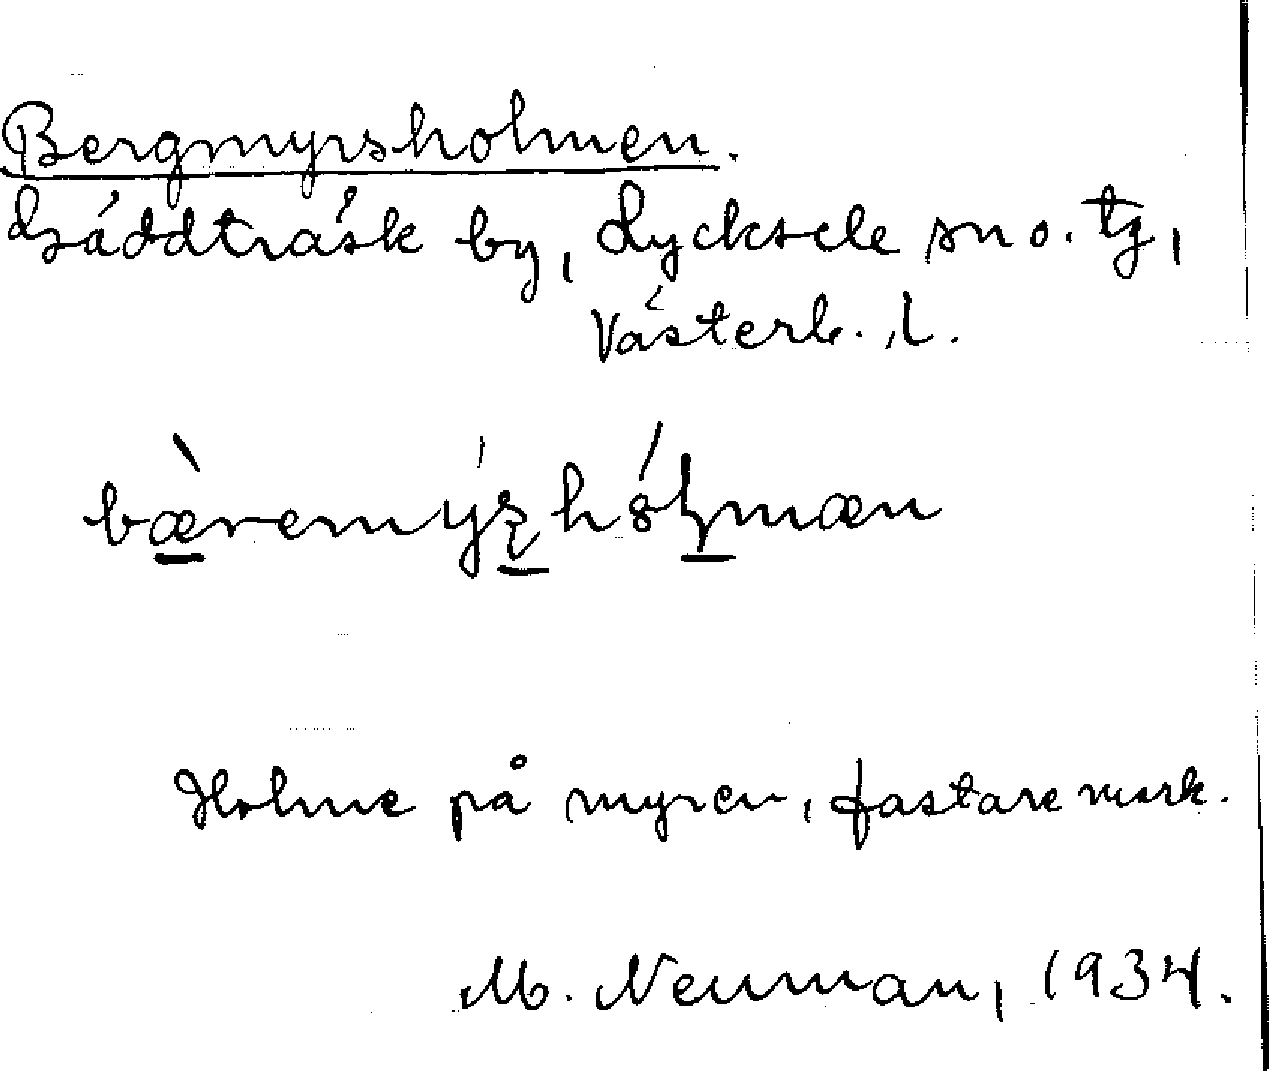 Bergmyrsholmen.
Gäddträsk by, Lycksele sn o. tg,
Västerb. l.
Holme på myren, fastare mark.
M. Neuman, 1934.